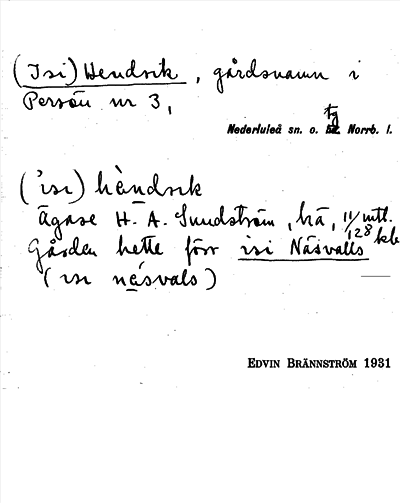 (Isi) Hendrik, gårdsnamn i
Persön nr 3,
tg
Nederluleå sn. o. Norrb. l.
('isi) hèndrik
Ägare H. A. Sundström, hā, 11/128 mtl.
Gården hette förr isi Näsvalls kb
(isi näsvals)
EDVIN BRÄNNSTRÖM 1931